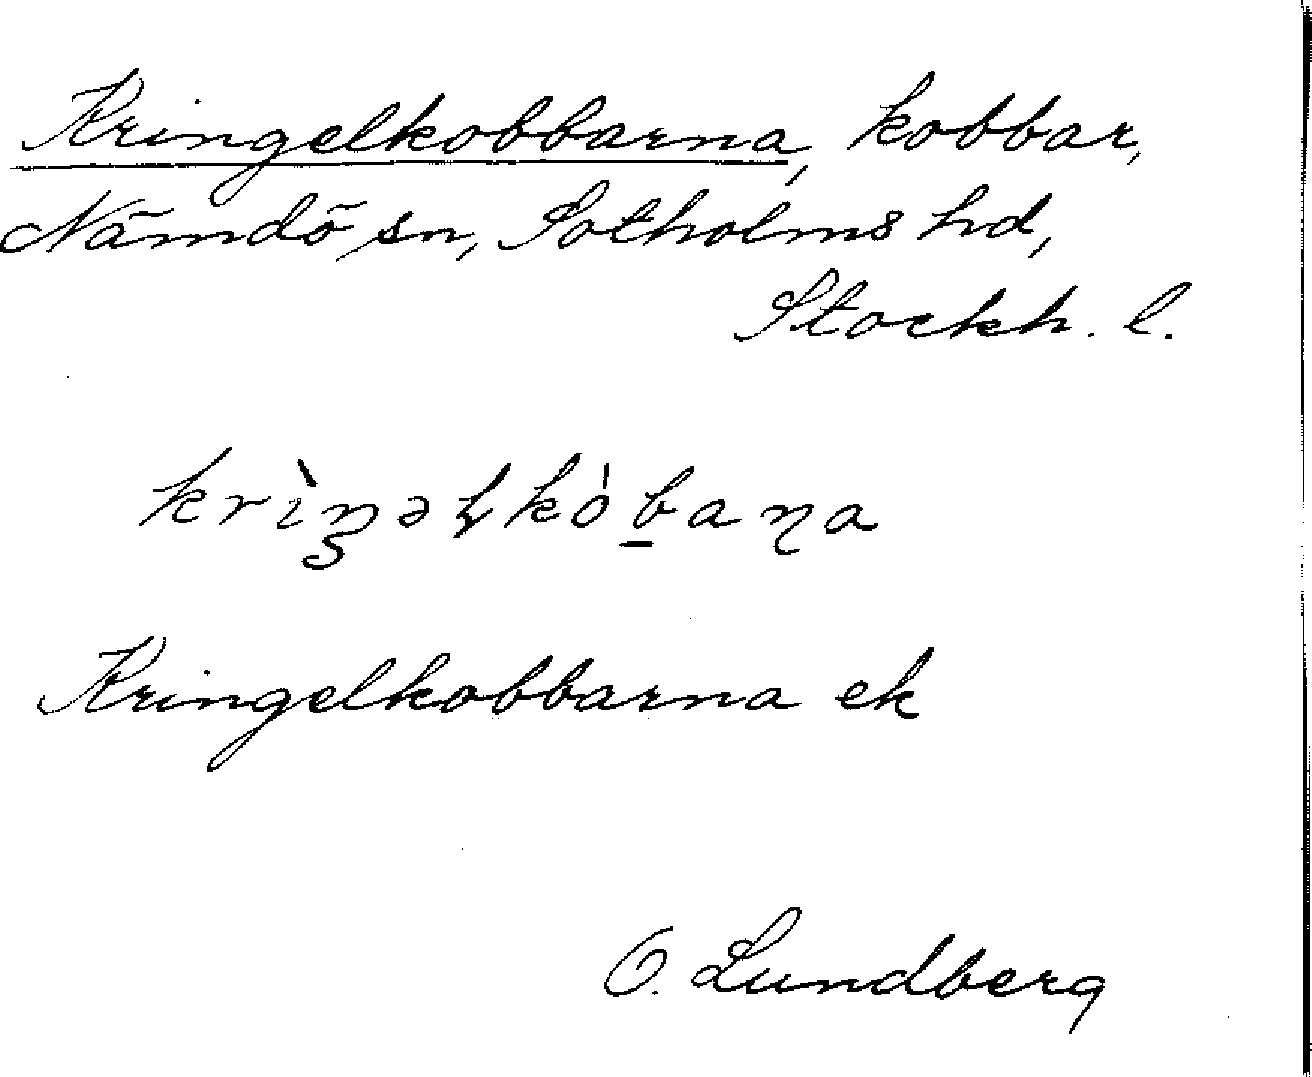 Kringelkobbarna, kobbar,
Nämdö sn, Sotholms hd,
Stockh. l.
krìŋəɫkòbaɳa
Kringelkobbarna ek
O. Lundberg